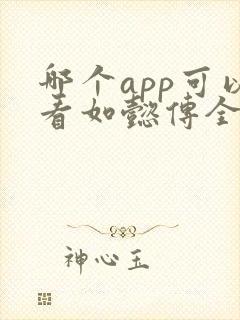 哪个app可以
看如懿传全
神心玉